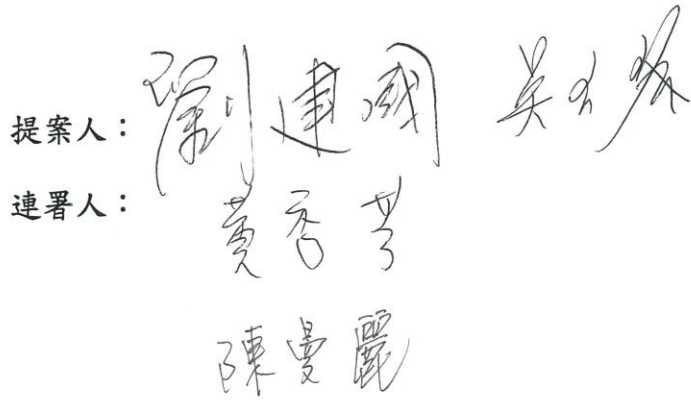 提案人：劉建國 吳玉琴
連署人：黃秀芳
陳曼麗